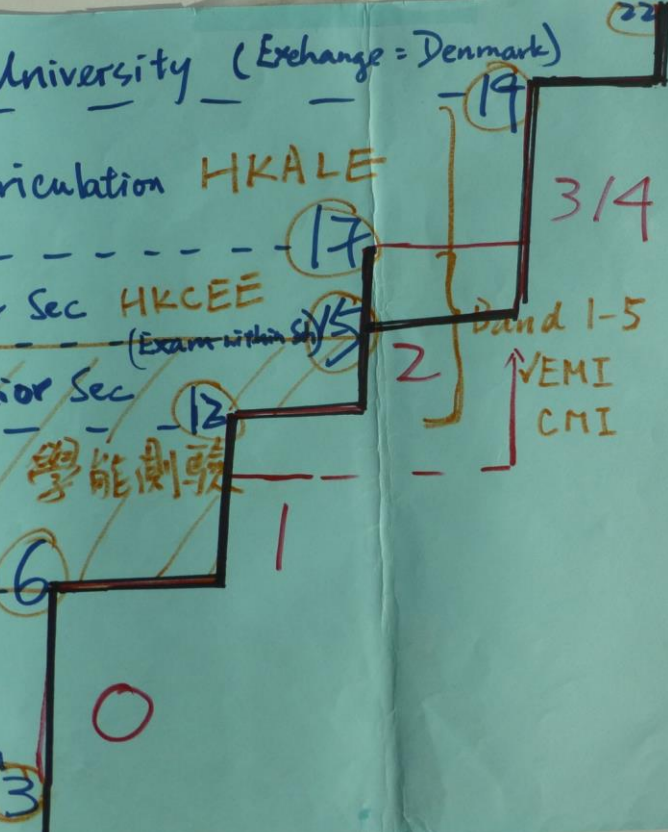 22
University (Exchange = Denmark)
19
riculation HKALE
3/4
17
Sec HKCEE
(Exam within Sch)
15
Band 1-5
2
√EMI
ior Sec
12
CMI
學能測驗
1
6
0
3